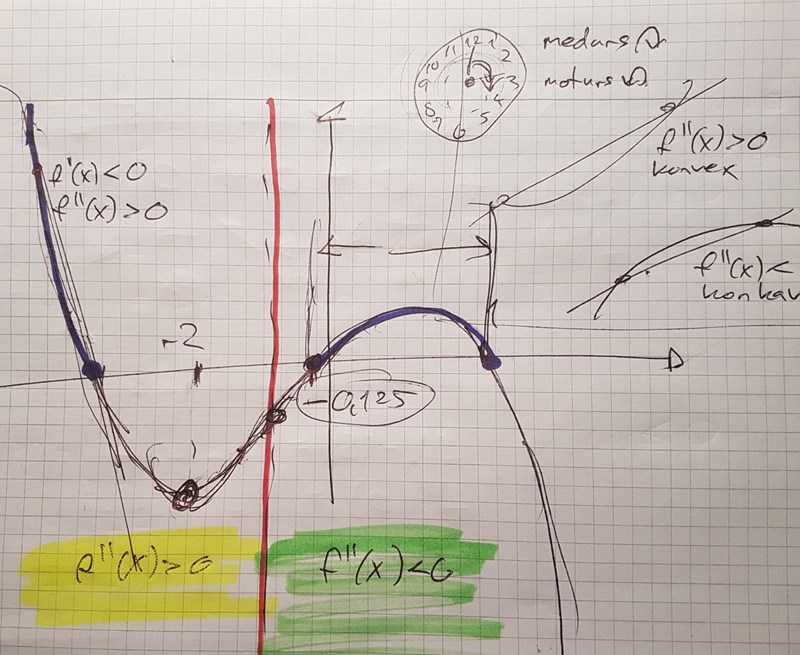 12
11 1
10 2
9 3
8 4
7 5
6
medurs
moturs
f'(x) < 0
f''(x) > 0
f''(x) > 0
konvex
f''(x) <
konkav
-2
-0,125
f''(x) > 0
f''(x) < 0